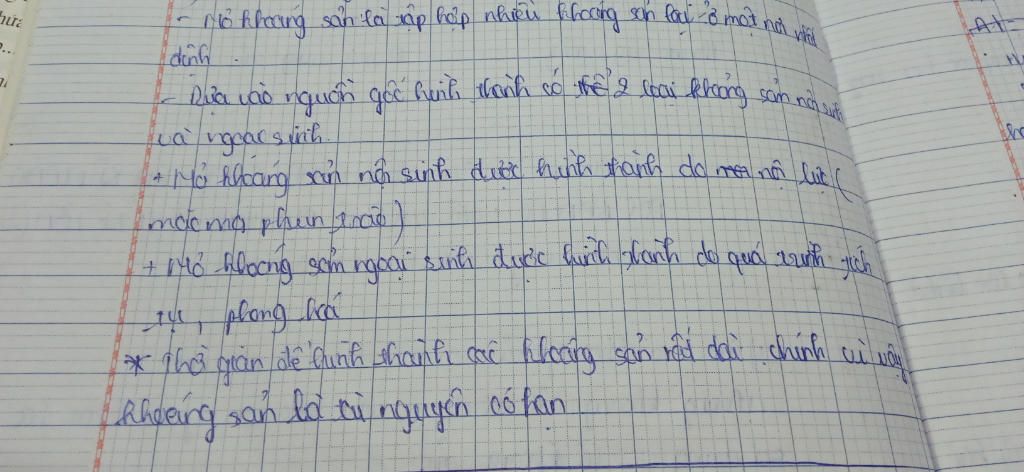 - Mỏ khoáng sản là tập hợp nhiều khoáng sản lại ở một nơi nhất
định.
- Dựa vào nguồn gốc hình thành có thể 2 loại khoáng sản nội sinh
và ngoại sinh.
+ Mỏ khoáng sản nội sinh được hình thành do nội lực (
mác ma phun trào)
+ Mỏ khoáng sản ngoại sinh được hình thành do quá trình tích
tụ, phong hoá
* Thời gian để hình thành các khoáng sản rất dài chính vì vậy
khoáng sản là tài nguyên có hạn